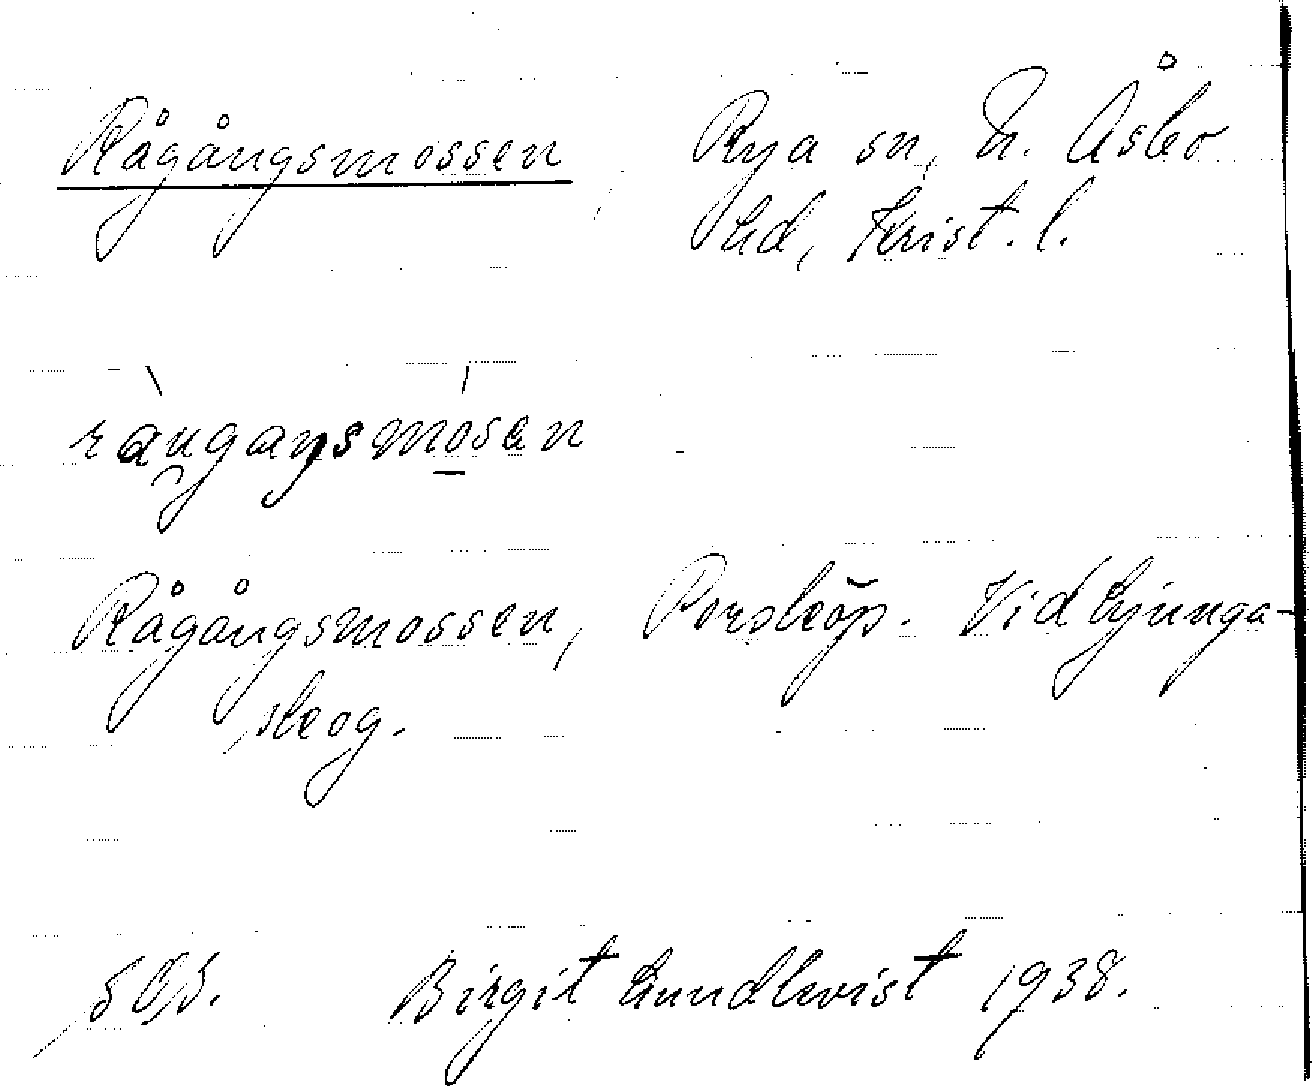 Rågångsmossen, Rya sn, N. Åsbo
hd, Krist. l.
Rågångsmossen, Porsköp. Vid Ljunga-
skog.
Birgit Lundkvist 1938.